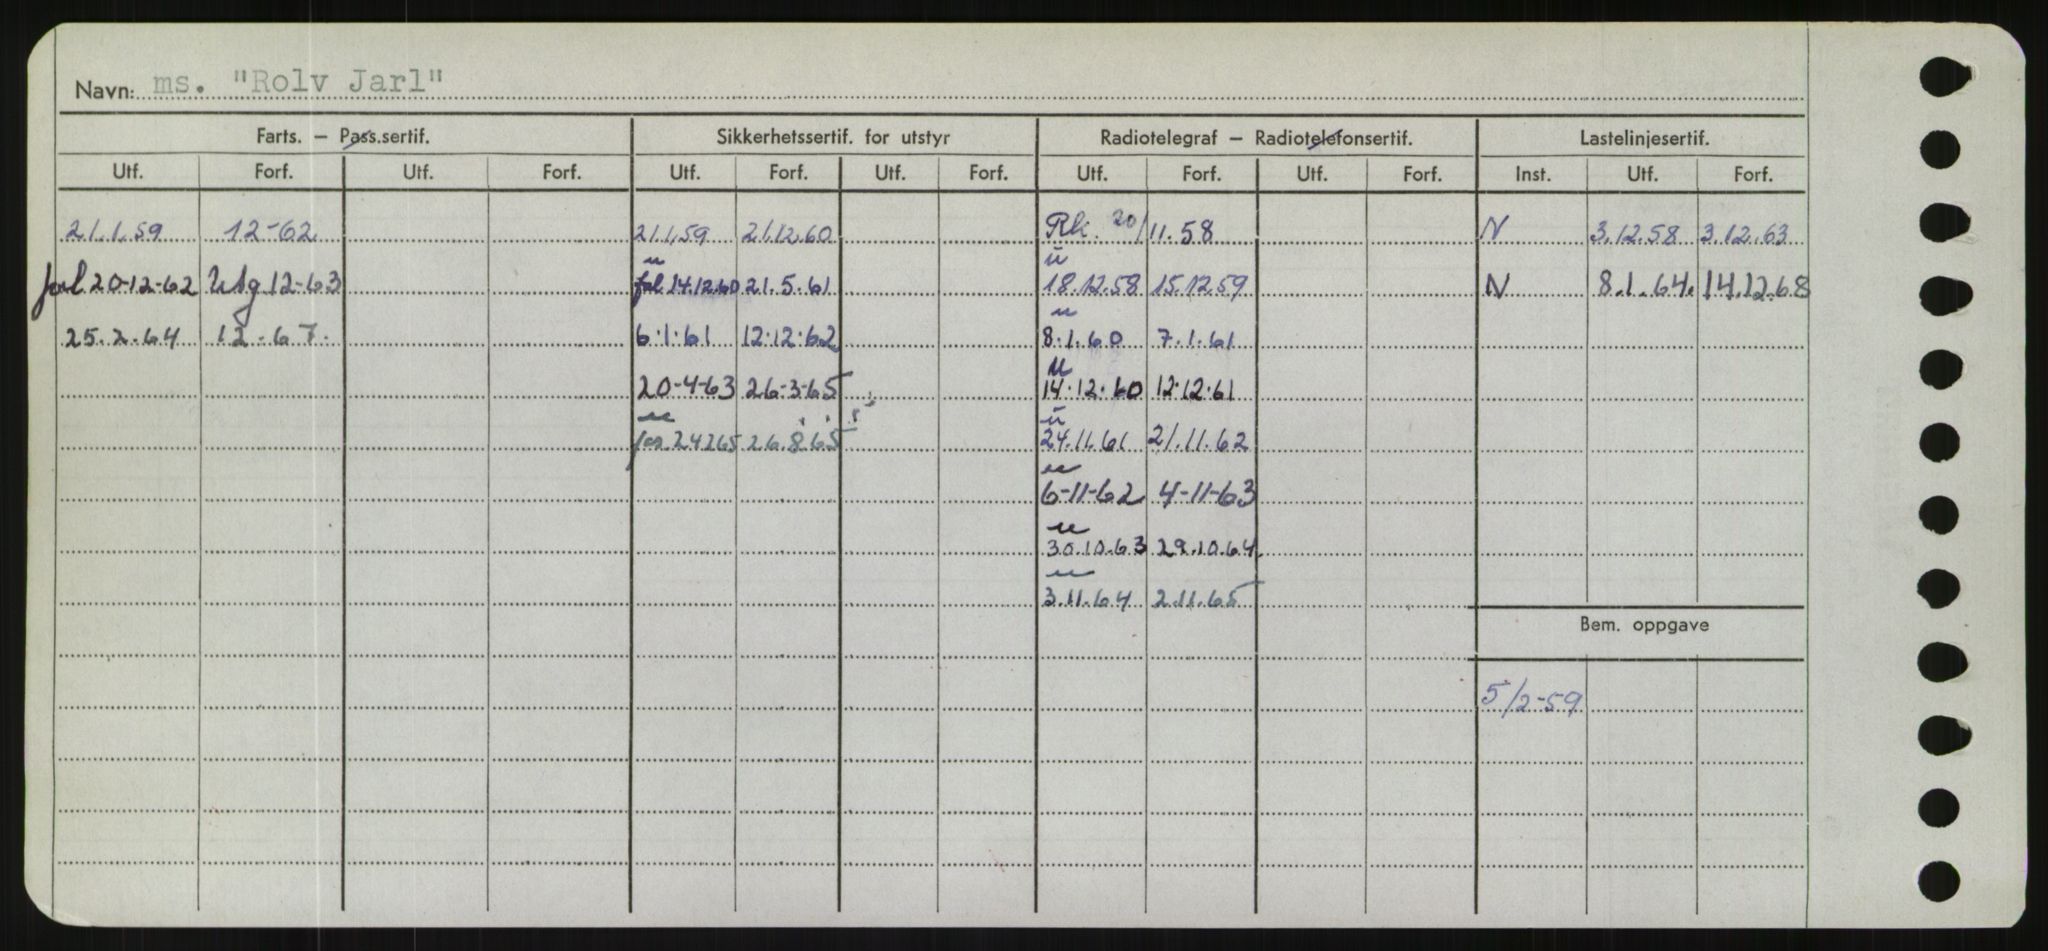 Navn: ms. "Rolv Jarl"
Farts. – Pass.sertif. Sikkerhetssertif. for utstyr Radiotelegraf – Radiotelefonsertif. Lastelinjesertif.
Utf. Forf. Utf. Forf. Utf. Forf. Utf. Forf. Utf. Forf. Utf. Forf. Inst. Utf. Forf.
21.1.59 12-62 21.1.59 21.12.60 Rk. 20/11.58 N 3.12.58 3.12.63
u ü
20-12-62 12-63 14.12.60 21.5.61 18.12.58 15.12.59 N 8.1.64. 14.12.68
u
25.2.64 12-67. 6.1.61 12.12.62 8.1.60 7.1.61
u
20-4-63 26-3-65 14.12.60 12.12.61
u ü
24265 26.8.65 24.11.61 21.11.62
u
6-11-62 4-11-63
u
30.10.63 29.10.64.
u
3.11.64 2.11.65
Bem. oppgave
5/2-59